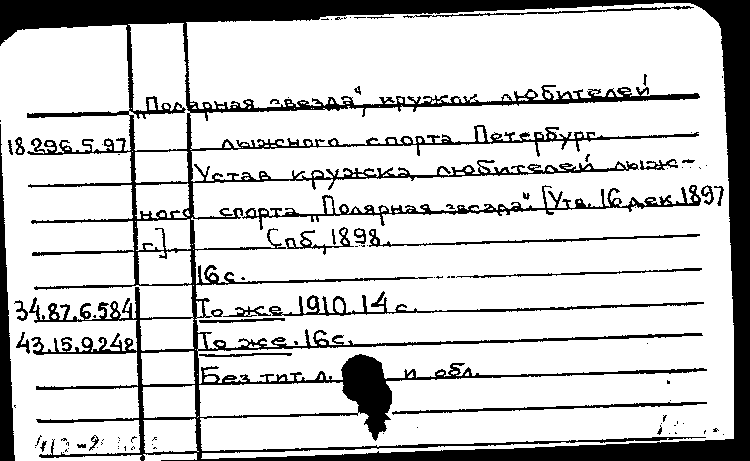 „Полярная звезда", кружок любителей
18.296.5.97 лыжного спорта. Петербург.
Устав кружка любителей лыж-
ного спорта „Полярная звезда". [Утв. 16 дек. 1897
г.]. Спб., 1898.
16 с.
34.87.6.584 То же. 1910. 14 с.
43.15.9.242 То же. 16 с.
Без тит. л. и обл.